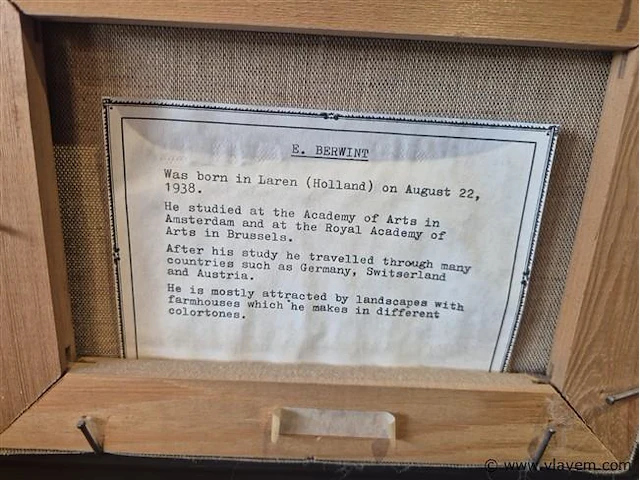 E. BERWINT
Was born in Laren (Holland) on August 22,
1938.
He studied at the Academy of Arts in
Amsterdam and at the Royal Academy of
Arts in Brussels.
After his study he travelled through many
countries such as Germany, Switserland
and Austria.
He is mostly attracted by landscapes with
farmhouses which he makes in different
colortones.
© www.vlavem.com